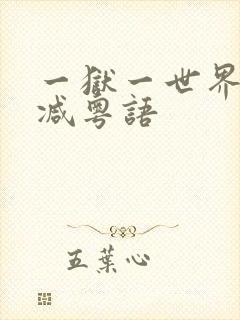 一獄一世界
减粤語
五葉心